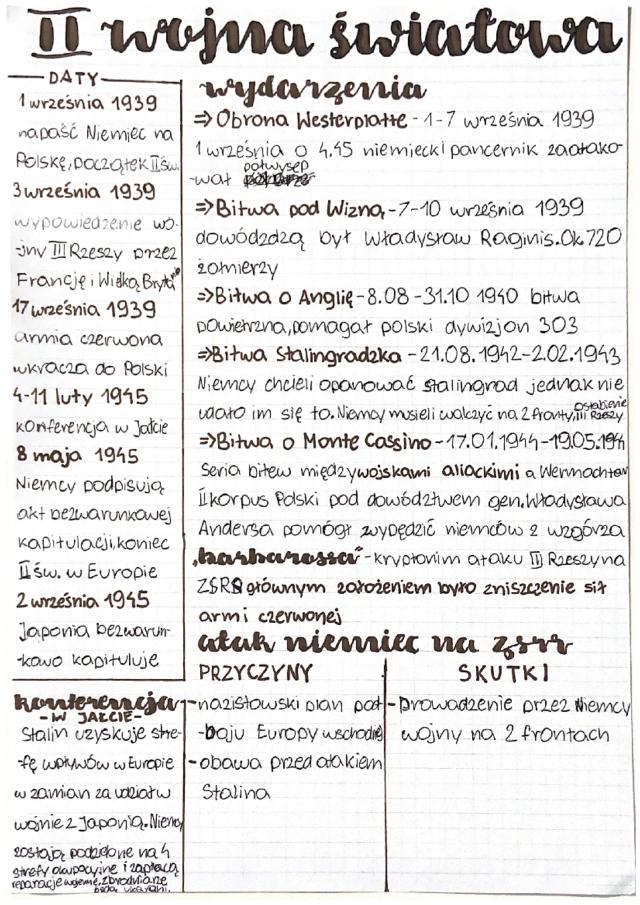 II wojna światowa
DATY
1 września 1939
napaść Niemiec na
Polskę, początek II św.
3 września 1939
wypowiedzenie wo-
-jny III Rzeszy przez
Francję i Wielką Brytanię
17 września 1939
armia czerwona
wkracza do Polski
4-11 luty 1945
konferencja w Jałcie
8 maja 1945
Niemcy podpisują
akt bezwarunkowej
kapitulacji, koniec
II św. w Europie
2 września 1945
Japonia bezwarun-
-kowo kapituluje
konferencja
-W JAŁCIE-
Stalin uzyskuje stre-
-fę wpływów w Europie
w zamian za udział w
wojnie z Japonią. Niemcy
zostają podzielone na 4
strefy okupacyjne i zapłacą
reparacje wojenne, zbrodniarze
będą ukarani.
wydarzenia
⇒ Obrona Westerplatte - 1-7 września 1939
1 września o 4.45 niemiecki pancernik zaatako-
-wał półwysep
⇒ Bitwa pod Wizną - 7-10 września 1939
dowódzdzą był Władysław Raginis. Ok. 720
żołnierzy
⇒ Bitwa o Anglię - 8.08 - 31.10 1940 bitwa
powietrzna, pomagał polski dywizjon 303
⇒ Bitwa Stalingradzka - 21.08.1942 - 2.02.1943
Niemcy chcieli opanować Stalingrad jednak nie
udało im się to. Niemcy musieli walczyć na 2 fronty, osłabienie III Rzeszy
⇒ Bitwa o Monte Cassino - 17.01.1944 - 19.05.1944
Seria bitew między wojskami aliackimi a Wermachtem
II korpus Polski pod dowództwem gen. Władysława
Andersa pomógł wypędzić niemców z wzgórza
"barbarossa" - kryptonim ataku III Rzeszy na
ZSRR głównym założeniem było zniszczenie sił
armi czerwonej
atak niemiec na zsrr
PRZYCZYNY
- nazistowski plan pod-
-boju Europy wschodniej
- obawa przed atakiem
Stalina
SKUTKI
- Prowadzenie przez Niemcy
wojny na 2 frontach